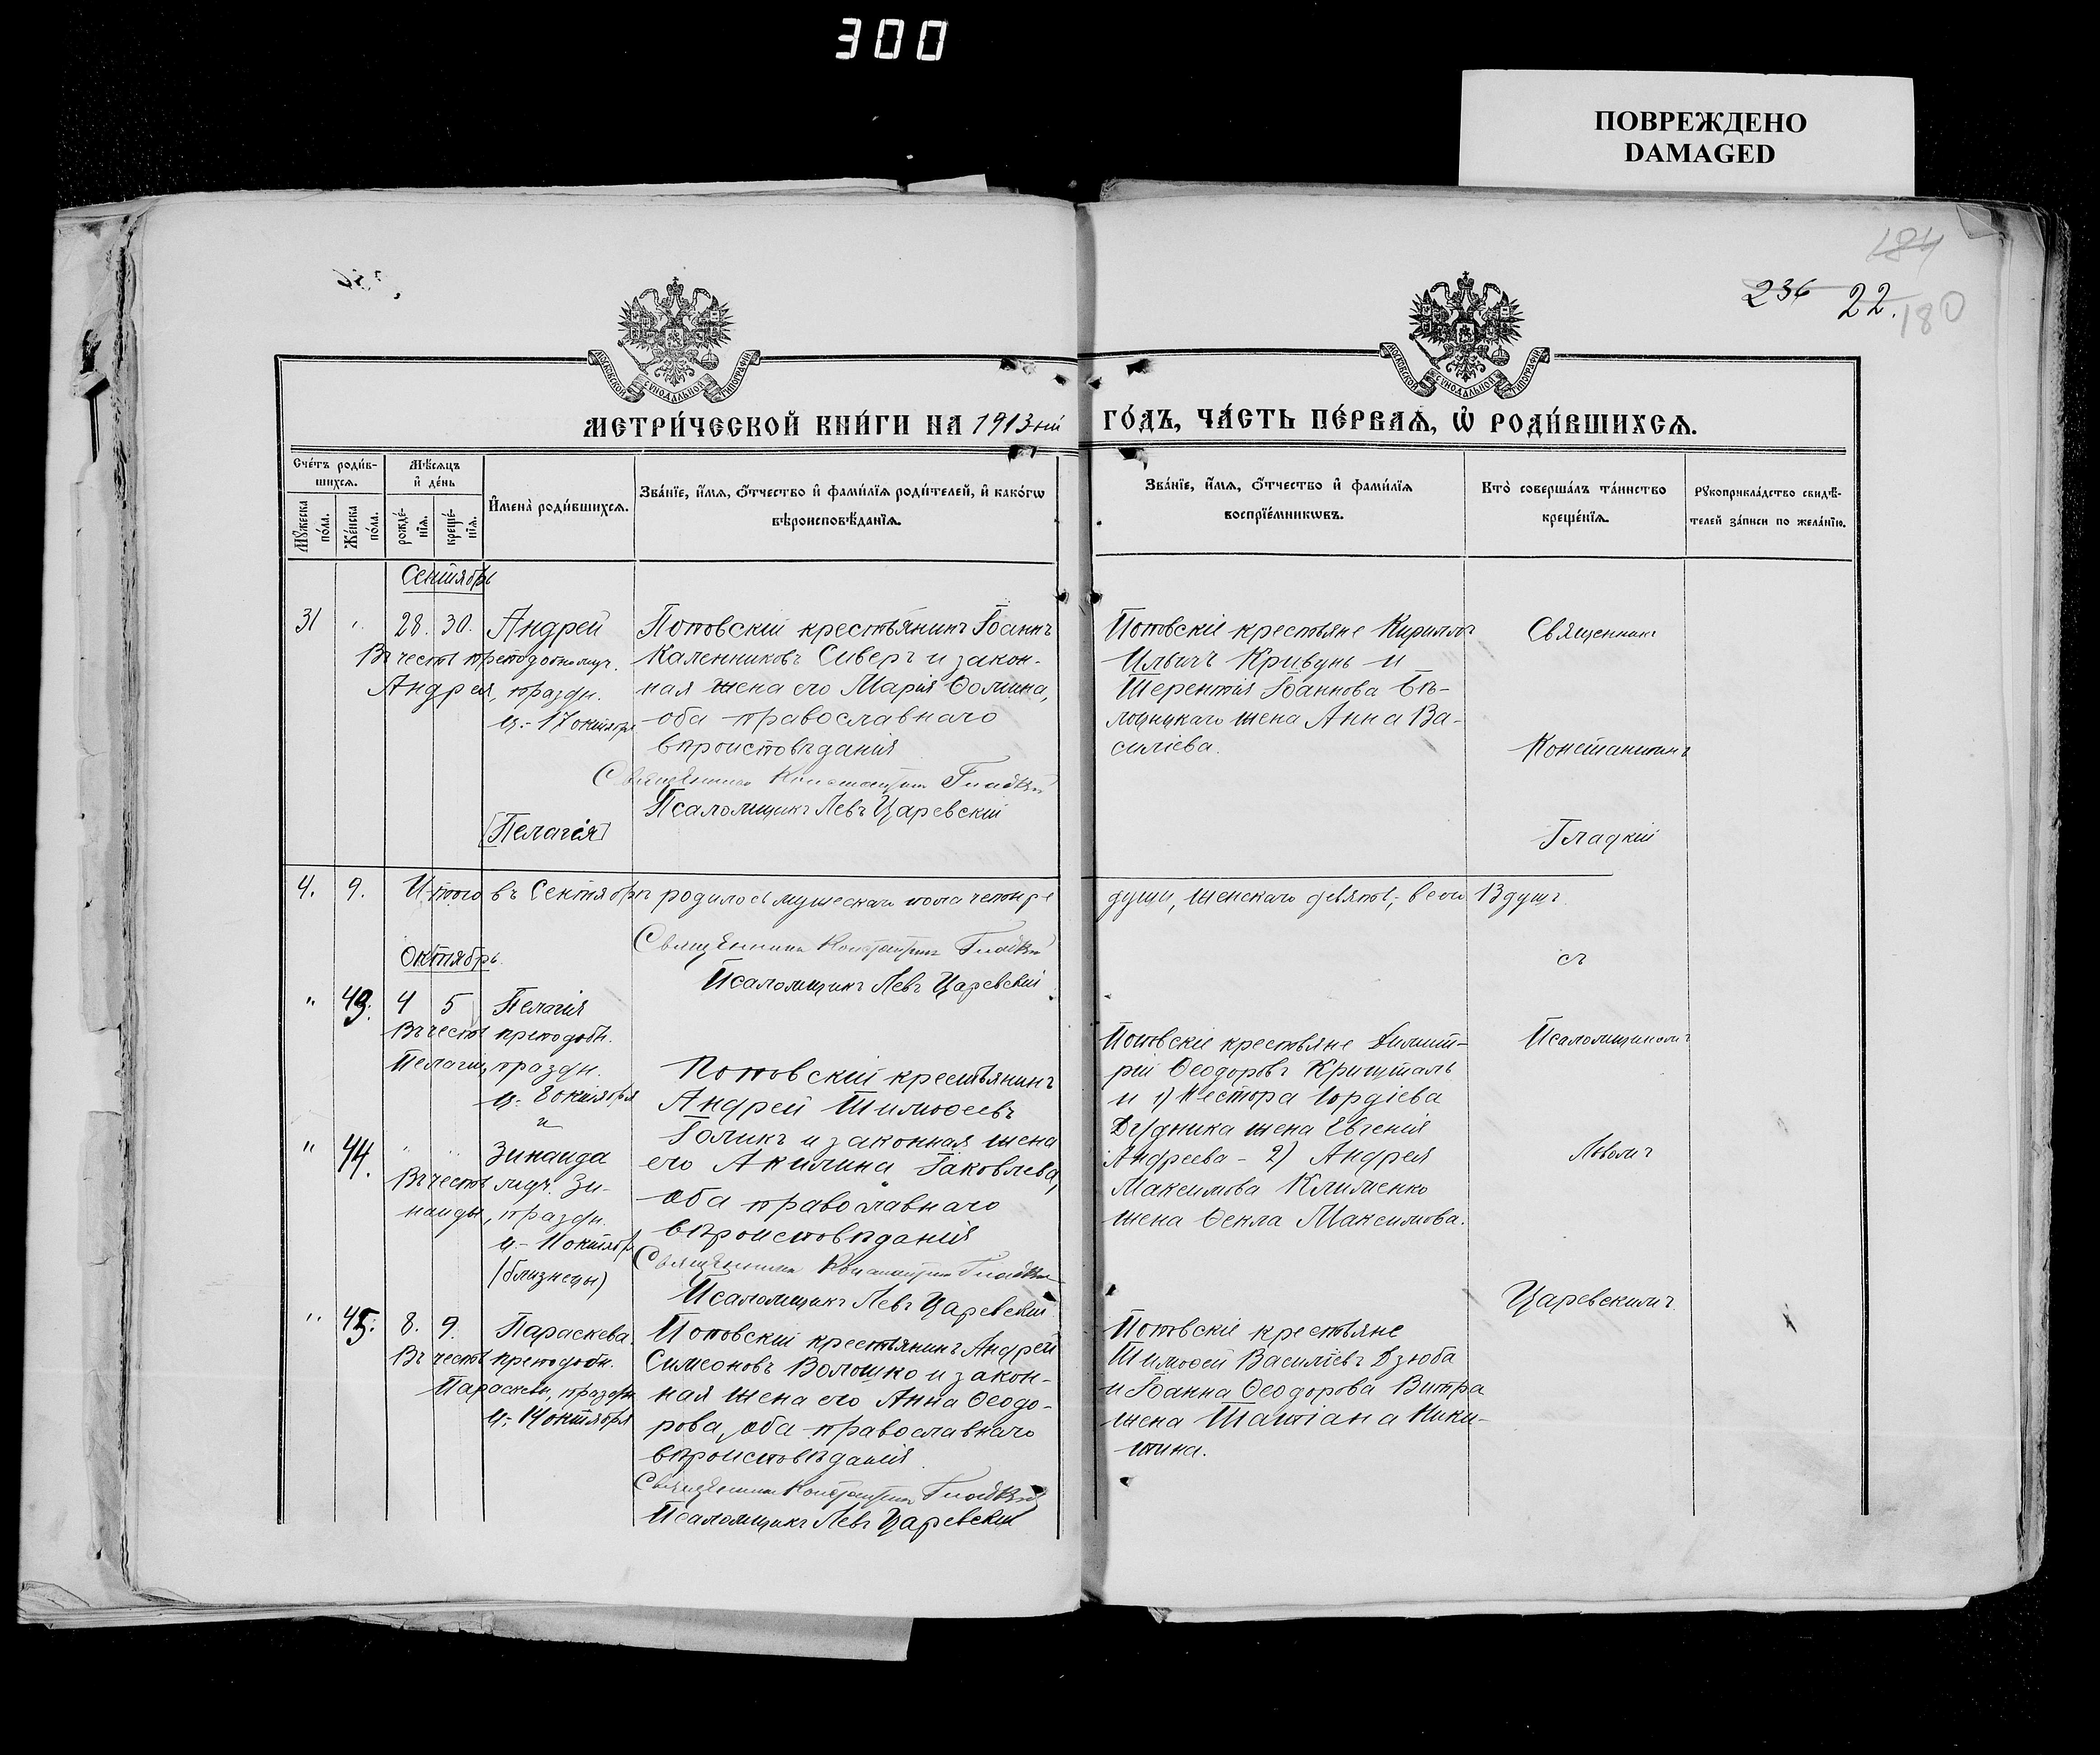 300
ПОВРЕЖДЕНО
DAMAGED
184
236 22. 180
МОСКОВСКОЙ СУНОДАЛЬНОЙ ТИПОГРАФІИ
МОСКОВСКОЙ СУНОДАЛЬНОЙ ТИПОГРАФІИ
МЕТРИ́ЧЕСКОЙ КНИ́ГИ НА 1913-ый ГО́ДЪ, ЧА́СТЬ ПЕ́РВАѦ, Ѡ҆ РОДИ́ВШИХСѦ.
Сче́тъ роди́в-
шихсѧ.
Мꙋ́жеска
по́ла.
Же́нска
по́ла.
Мѣ́сѧцъ
и҆ де́нь
рожде́-
нїѧ.
креще́-
нїѧ.
И҆мена̀ роди́вшихсѧ.
Зва́нїе, и҆́мѧ, ѻ҆́тчество и҆ фами́лїѧ роди́телей, и҆ како́гѡ
вѣроисповѣ́данїѧ.
Зва́нїе, и҆́мѧ, ѻ҆́тчество и҆ фами́лїѧ
воспрїе́мникѡвъ.
Кто̀ соверша́лъ та́инство
креще́нїѧ.
Рꙋкоприкла́дство свидѣ́-
телей за́писи по жела́нїю.
Сентябрь
31 " 28. 30. Андрей
Въ честь преподобномуч.
Андрея, праздн.
ц:- 17 октября
Поповскій крестьянинъ Іоаннъ
Каленниковъ Сиверъ и закон-
ная жена его Марія Ѳомина,
оба православнаго
вѣроисповѣданія
Священникъ Константинъ Гладкій
Псаломщикъ Левъ Царевскій
[Пелагія]
Поповскіе крестьяне Кириллъ
Ильичъ Кривунь и
Терентія Іоаннова Бѣ-
лоцуцкаго жена Анна Ва-
силіева.
Священникъ
Константинъ
Гладкій
4. 9. Итого въ Сентябрѣ родилось мужескаго пола четыре души, женскаго девять; всего 13 душъ
Священникъ Константинъ Гладкій
Псаломщикъ Левъ Царевскій
съ
Октябрь.
" 43. 4 5 Пелагія
Въ честь преподобн.
Пелагіи, праздн.
ц:- 8 октября
и
" 44. " " Зинаида
Въ честь муч. Зи-
наиды, праздн.
ц:- 11 октября
(близнецы)
Поповскій крестьянинъ
Андрей Тимоѳеевъ
Голикъ и законная жена
его Акилина Іаковлева,
оба православнаго
вѣроисповѣданія
Священникъ Константинъ Гладкій
Псаломщикъ Левъ Царевскій
Поповскіе крестьяне Димит-
рій Ѳеодоровъ Кришталь
и 1) Нестора Гордіева
Дудника жена Евгенія
Андреева - 2) Андрея
Максимова Клименко
жена Ѳекла Максимова.
Псаломщикомъ
Львомъ
Царевскимъ.
" 45. 8. 9. Параскева.
Въ честь преподобн.
Параскевы, праздн.
ц:- 14 октября
Поповскій крестьянинъ Андрей
Симеоновъ Волошко и закон-
ная жена его Анна Ѳеодо-
рова, оба православнаго
вѣроисповѣданія
Священникъ Константинъ Гладкій
Псаломщикъ Левъ Царевскій
Поповскіе крестьяне
Тимоѳей Василіевъ Дзюба
и Іоанна Ѳеодорова Витра
жена Татіана Ники-
тина.